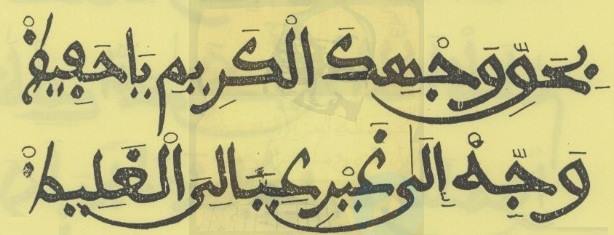 بِحَقِّ وَجْهِكَ الْكَرِيمِ يَا حَفِيظْ
وَجِّهْ إِلَى غَيْرِي الْغَلِيظْ